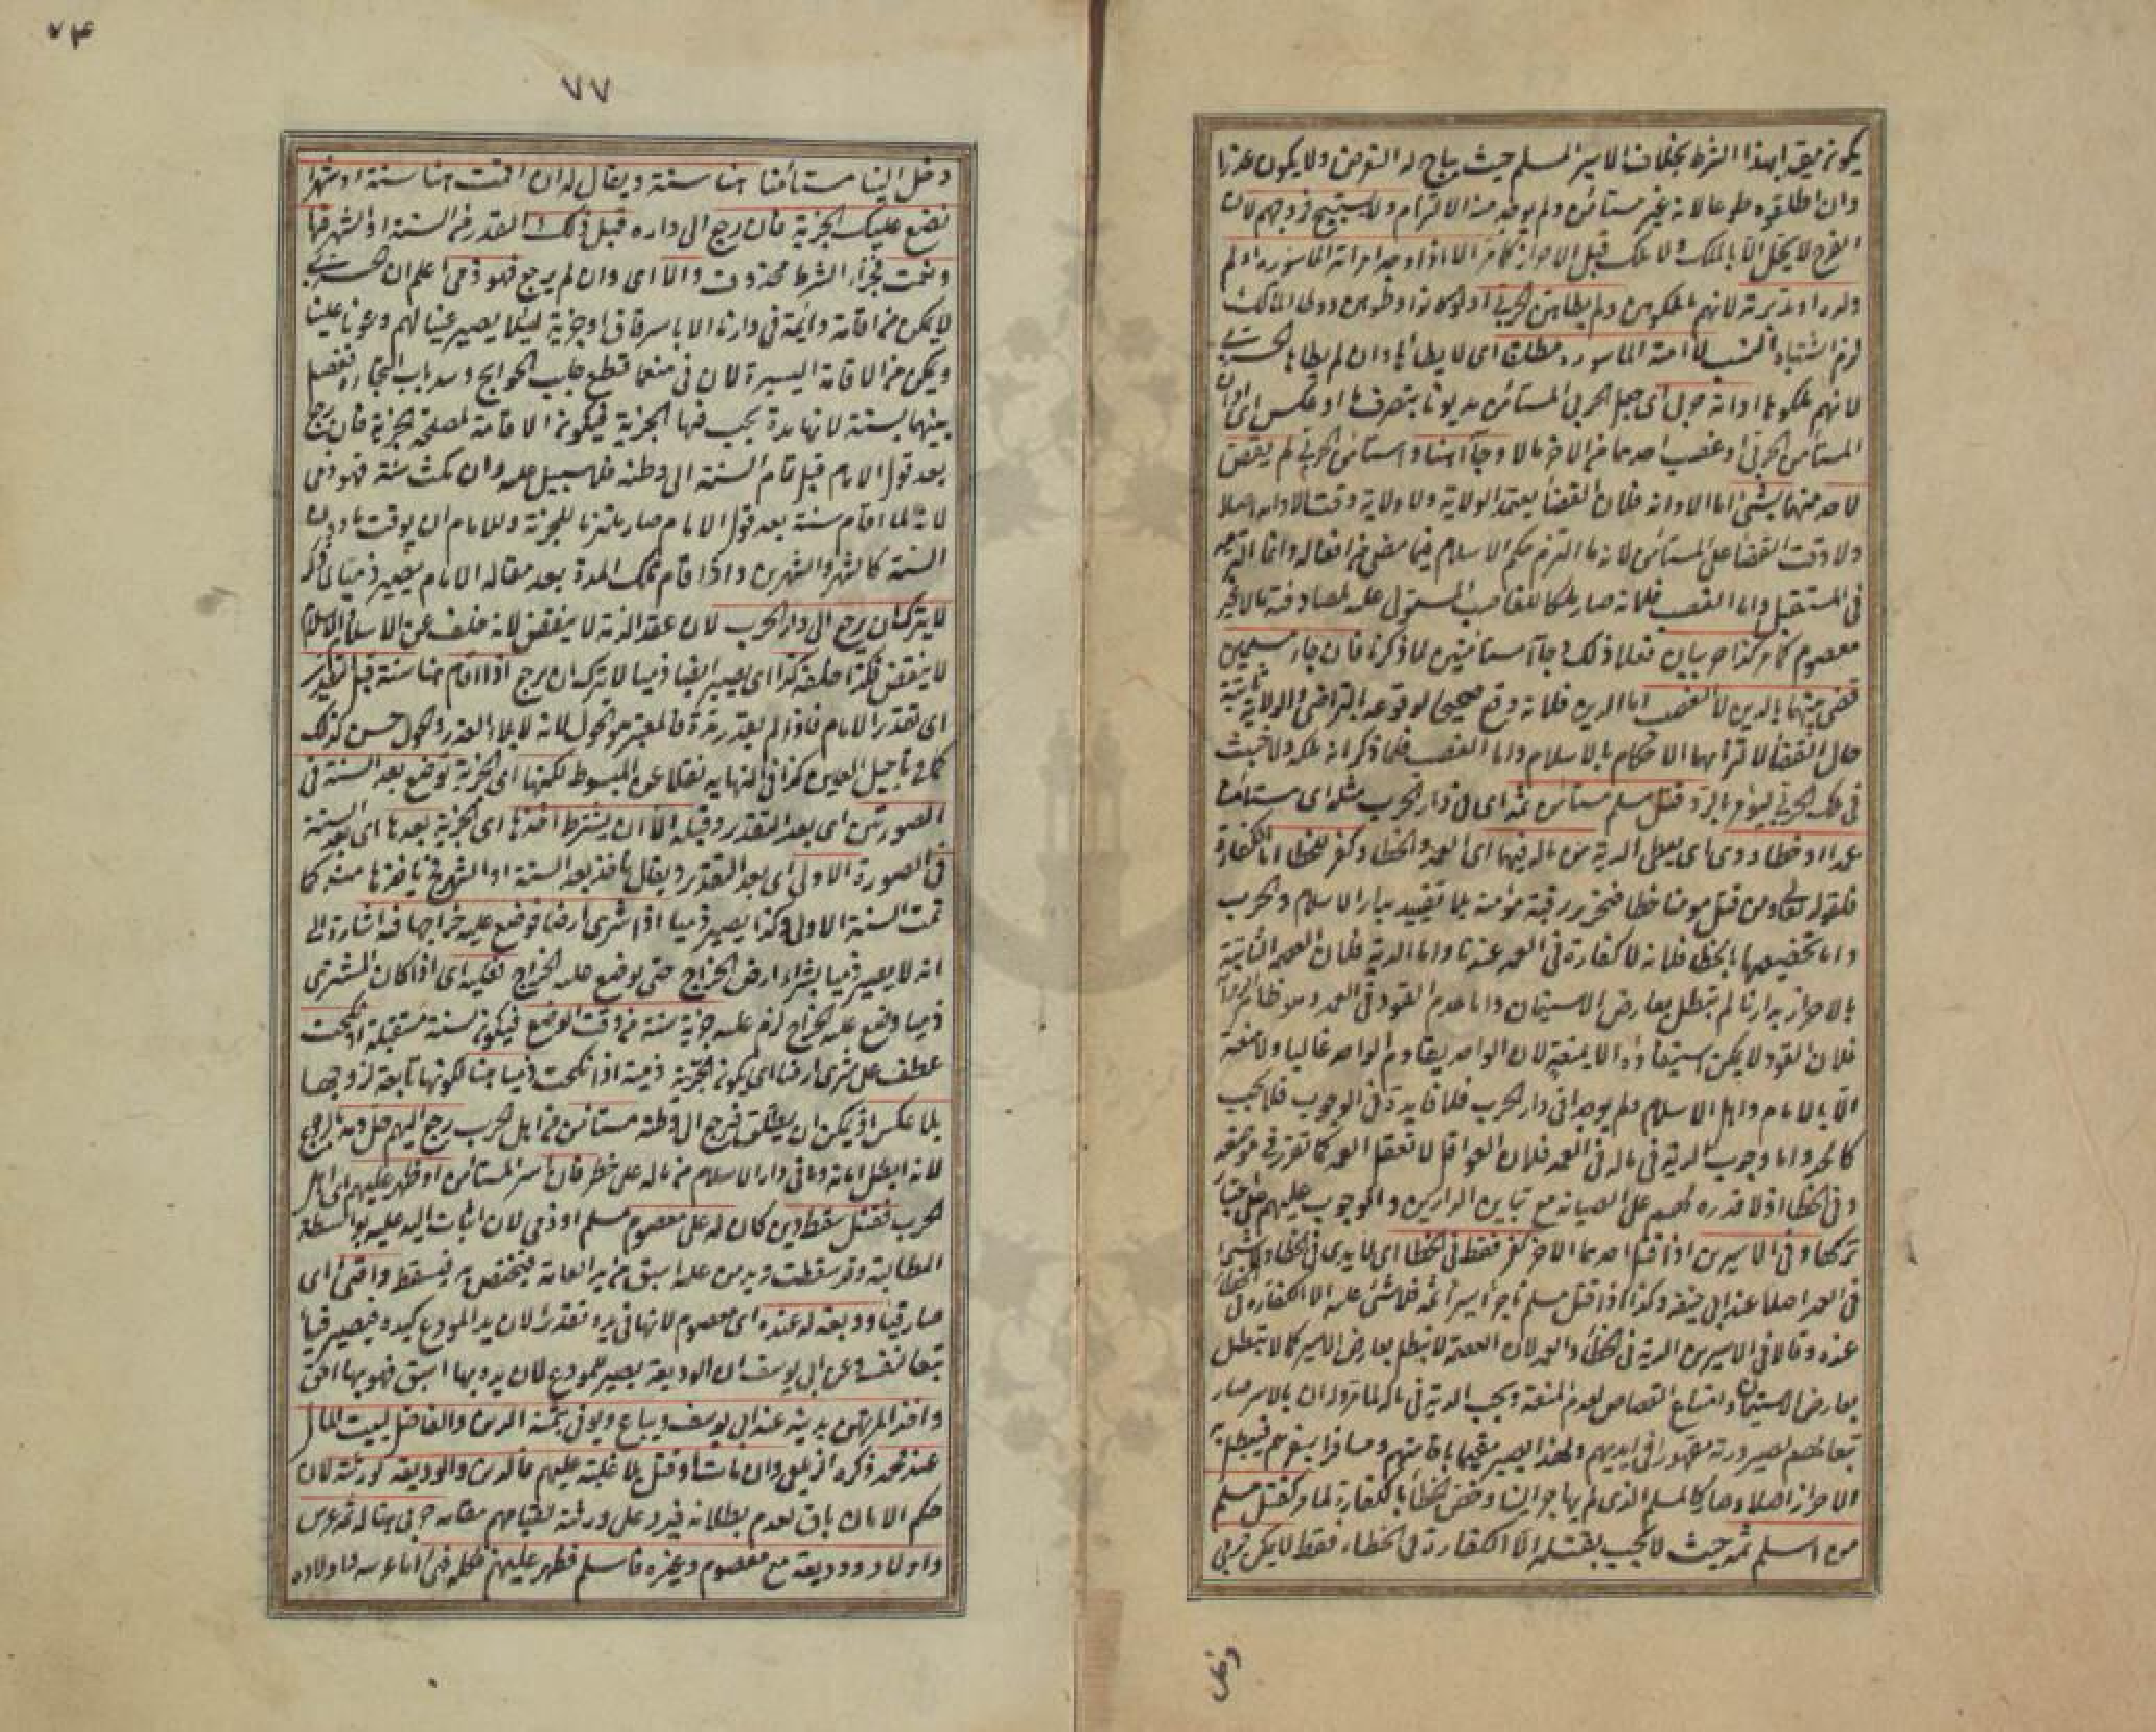 يكونه مقيدا بهذا الشرط بخلاف الاسير المسلم حيث يباح له التعرض ولا يكون غدرا
وان اطلقوه طوعا لانه غير مستأمن ولم يوجد منه الالتزام ولا يستبيح فروجهم لان
الفرج لا يحل الا بالملك ولا ملك قبل الاحراز كما مر الا اذا وجد امرأته المأسورة او ام
ولده او مدبرته لانهم ما ملكوهن ولم يطأهن الحربي اذ لو كانوا وطؤهن ووطئ المالك
لزم اشتباه النسب لا امته المأسورة مطلقا اى لا يطأها وان لم يطأها الحربي
لانهم ملكوها ادانه حربى اى جعل الحربى المستأمن مديونا بتصرف ما او عكس اى ادان
المستأمن الحربى او غصب احدهما من الاخر مالا وجاآ هنا واستأمن الحربى لم يقض
لاحد منهما بشئ اما الادانة فلان القضا يعتمد الولاية ولا ولاية وقت الادانة اصلا
ولا وقت القضا على المستأمن لانه ما التزم حكم الاسلام فيما مضى من افعاله وانما التزمه
فى المستقبل واما الغصب فلانه صار ملكا للغاصب المستولى عليه لمصادفته مالا غير
معصوم كما مر كذا حربيان فعلا ذلك وجاآ مستأمنين لما ذكرنا فان جاآ مسلمين
قضى بينهما بالدين لا الغصب اما الدين فلانه وقع صحيحا لوقوعه بالتراضى والولاية ثابتة
حال القضا لالتزامهما الاحكام بالاسلام واما الغصب فلما ذكر انه ملكه ولا خبث
فى ملك الحربى ليؤمر بالرد قتل مسلم مستأمن ثمه اى فى دار الحرب مثله اى مستأمنا
عمدا او خطأ ودى اى يعطى الدية من ماله فيهما اى العمد والخطأ وكفر للخطأ اما الكفارة
فلقوله تعالى ومن قتل مومنا خطأ فتحرير رقبة مؤمنة بلا تقييد بدار الاسلام والحرب
واما تخصيصها بالخطأ فلانه لا كفارة فى العمد عندنا واما الدية فلان العصمة الثابتة
بالاحراز بدارنا لم تبطل بعارض الاستيمان واما عدم القود فى العمد وهو ظاهر الرواية
فلان القود لا يمكن استيفاؤه الا بمنعة لان الواحد يقاوم الواحد غالبا ولا منعة
الا بالامام واهل الاسلام ولم يوجدا فى دار الحرب فلا فايدة فى الوجوب فلا يجب
كالحد واما وجوب الدية فى ماله فى العمد فلان العواقل لا تعقل العمد كما تقرر فى موضعه
وفى الخطأ اذ لا قدرة لهم على الصيانة مع تباين الدارين والوجوب عليهم على اعتبار
تركها وفى الاسيرين اذا قتل احدهما الاخر كفر فقط فى الخطأ اى لا يدى فى الخطأ ولا شئ
فى العمد اصلا عند ابى حنيفة وكذا اذا قتل مسلم تاجر اسيرا ثمه فلا شئ عليه الا الكفارة فى الخطأ
عنده وقالا فى الاسيرين الدية فى الخطأ والعمد لان العصمة لا تبطل بعارض الاسر كما لا تبطل
بعارض الاستيمان وامتناع القصاص لعدم المنعة ويجب الدية فى ماله لما مر وله ان بالاسر صار
تبعا لهم لصيرورته مقهورا فى ايديهم ولهذا يصير مقيما باقامتهم ومسافرا بسفرهم فيبطل به
الاحراز اصلا وصار كالمسلم الذى لم يهاجر الينا وخص الخطأ بالكفارة لما مر كقتل مسلم
من اسلم ثمه حيث لا يجب بقتله الا الكفارة فى الخطاء فقط لا يمكن حربى
دخل
٧٤
٧٧
دخل الينا مستأمنا هنا سنة ويقال له ان اقمت هنا سنة او شهرا
نضع عليك الجزية فان رجع الى داره قبل ذلك القدر من السنة او الشهر فبها
ونعمت فجزاء الشرط محذوف والا اى وان لم يرجع فهو ذمى اعلم ان الحربى
لا يمكن من اقامة دائمة فى دارنا الا باسترقاق او جزية لئلا يصير عينا لهم وعونا علينا
ويمكن من الاقامة اليسيرة لان فى منعها قطع جلب الحوايج وسد باب التجارة ففصل
بينهما بسنة لانها مدة يجب فيها الجزية فيكونه الاقامة لمصلحة الجزية فان رجع
بعد قول الامام قبل تمام السنة الى وطنه فلا سبيل عليه وان مكث سنة فهو ذمى
لانه لما اقام سنة بعد قول الامام صار ملتزما للجزية وللامام ان يوقت ما دون
السنة كالشهر والشهرين واذا اقام تلك المدة بعد مقالة الامام يصير ذميا لما ذكر
لا يترك ان يرجع الى دار الحرب لان عقد الذمة لا ينقض لانه خلف عن الاسلام والاسلام
لا ينقض فكذا خلفه كذا اى يصير ايضا ذميا لا يترك ان يرجع اذا اقام هنا سنة قبل تقديره
اى تقدير الامام فاذا لم يقدر مدة فالمعتبر هو الحول لانه لابلاء العذر والحول حسن لذلك
كما فى تأجيل العنين كذا فى النهاية نقلا عن المبسوط لكنها اى الجزية توضع بعد السنة فى
الصورتين اى بعد التقدير وقبله الا ان يشترط اخذها اى الجزية بعدها اى بعد السنة
فى الصورة الاولى اى بعد التقدير ويقال نأخذ بعد السنة او الشهر فيأخذها منه كما
تمت السنة الاولى وكذا يصير ذميا اذا شرى ارضا فوضع عليه خراجها فيه اشارة الى
انه لا يصير ذميا بشراء ارض الخراج حتى يوضع عليه الخراج فعليه اى اذا كان المشترى
ذميا ووضع عليه الخراج لزم عليه جزية سنة من وقت الوضع فيكونه لسنة مستقبلة او نكحت
عطف على شرى ارضا اى يكونه الحربية ذمية اذا نكحت ذميا هنا لكونها تابعة لزوجها
بلا عكس اذ يمكن ان يطلق فيرجع الى وطنه مستأمن من اهل الحرب رجع اليهم حل دمه بالرجوع
لانه ابطل امانه وما فى دار الاسلام من ماله على خطر فان اسر المستأمن او ظهر عليهم اى اهل
الحرب فقتل سقط دين كان له على معصوم مسلم او ذمى لان اثبات اليد عليه بواسطة
المطالبة وقد سقطت ويد من عليه اسبق من يد العامة فيختص به فيسقط وافئ اى
صار فيأ وديعة له عنده اى معصوم لانها فى يده تقديرا لان يد المودع كيده فيصير فيأ
تبعا لنفسه وعن ابى يوسف ان الوديعة يصير للمودع لان يده بها اسبق فهو بها احق
واخذ المرتهن بدينه عند ابى يوسف ويباع ويوفى بثمنه الدين والفاضل لبيت المال
عند محمد ذكره الزيلعى وان مات او قتل بلا غلبة عليهم فالدين والوديعة لورثته لان
حكم الامان باق لعدم بطلانه فيرد على ورثته لقيامهم مقامه حربى هنا له ثمه عرس
واولاد ووديعة مع معصوم وغيره فاسلم فظهر عليهم فكله فئ اما عرسه واولاده